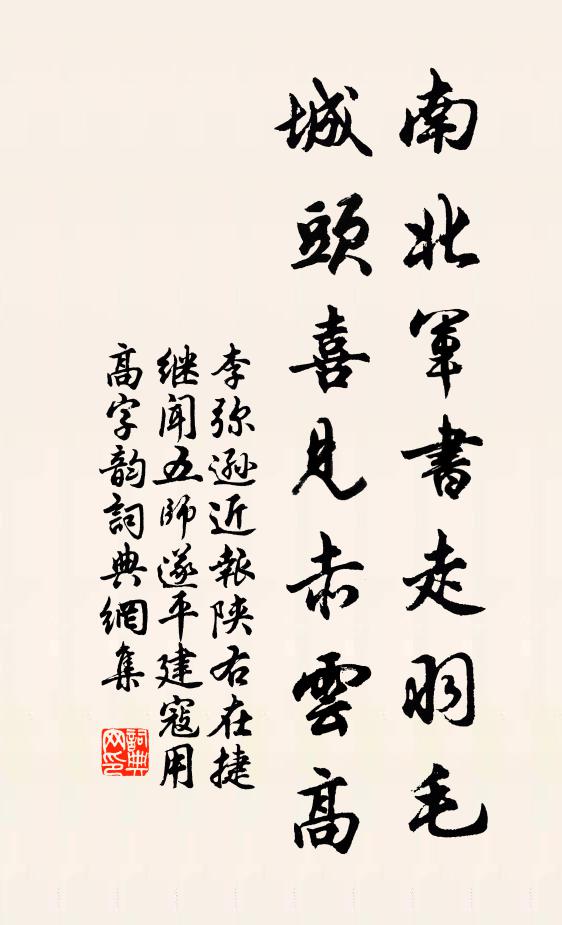 南北軍書走羽毛
城頭喜見赤雲高
李弥遜近報陝右在捷
继闻五師遂平建寇用
高字韵詞典網集
詞典
网印